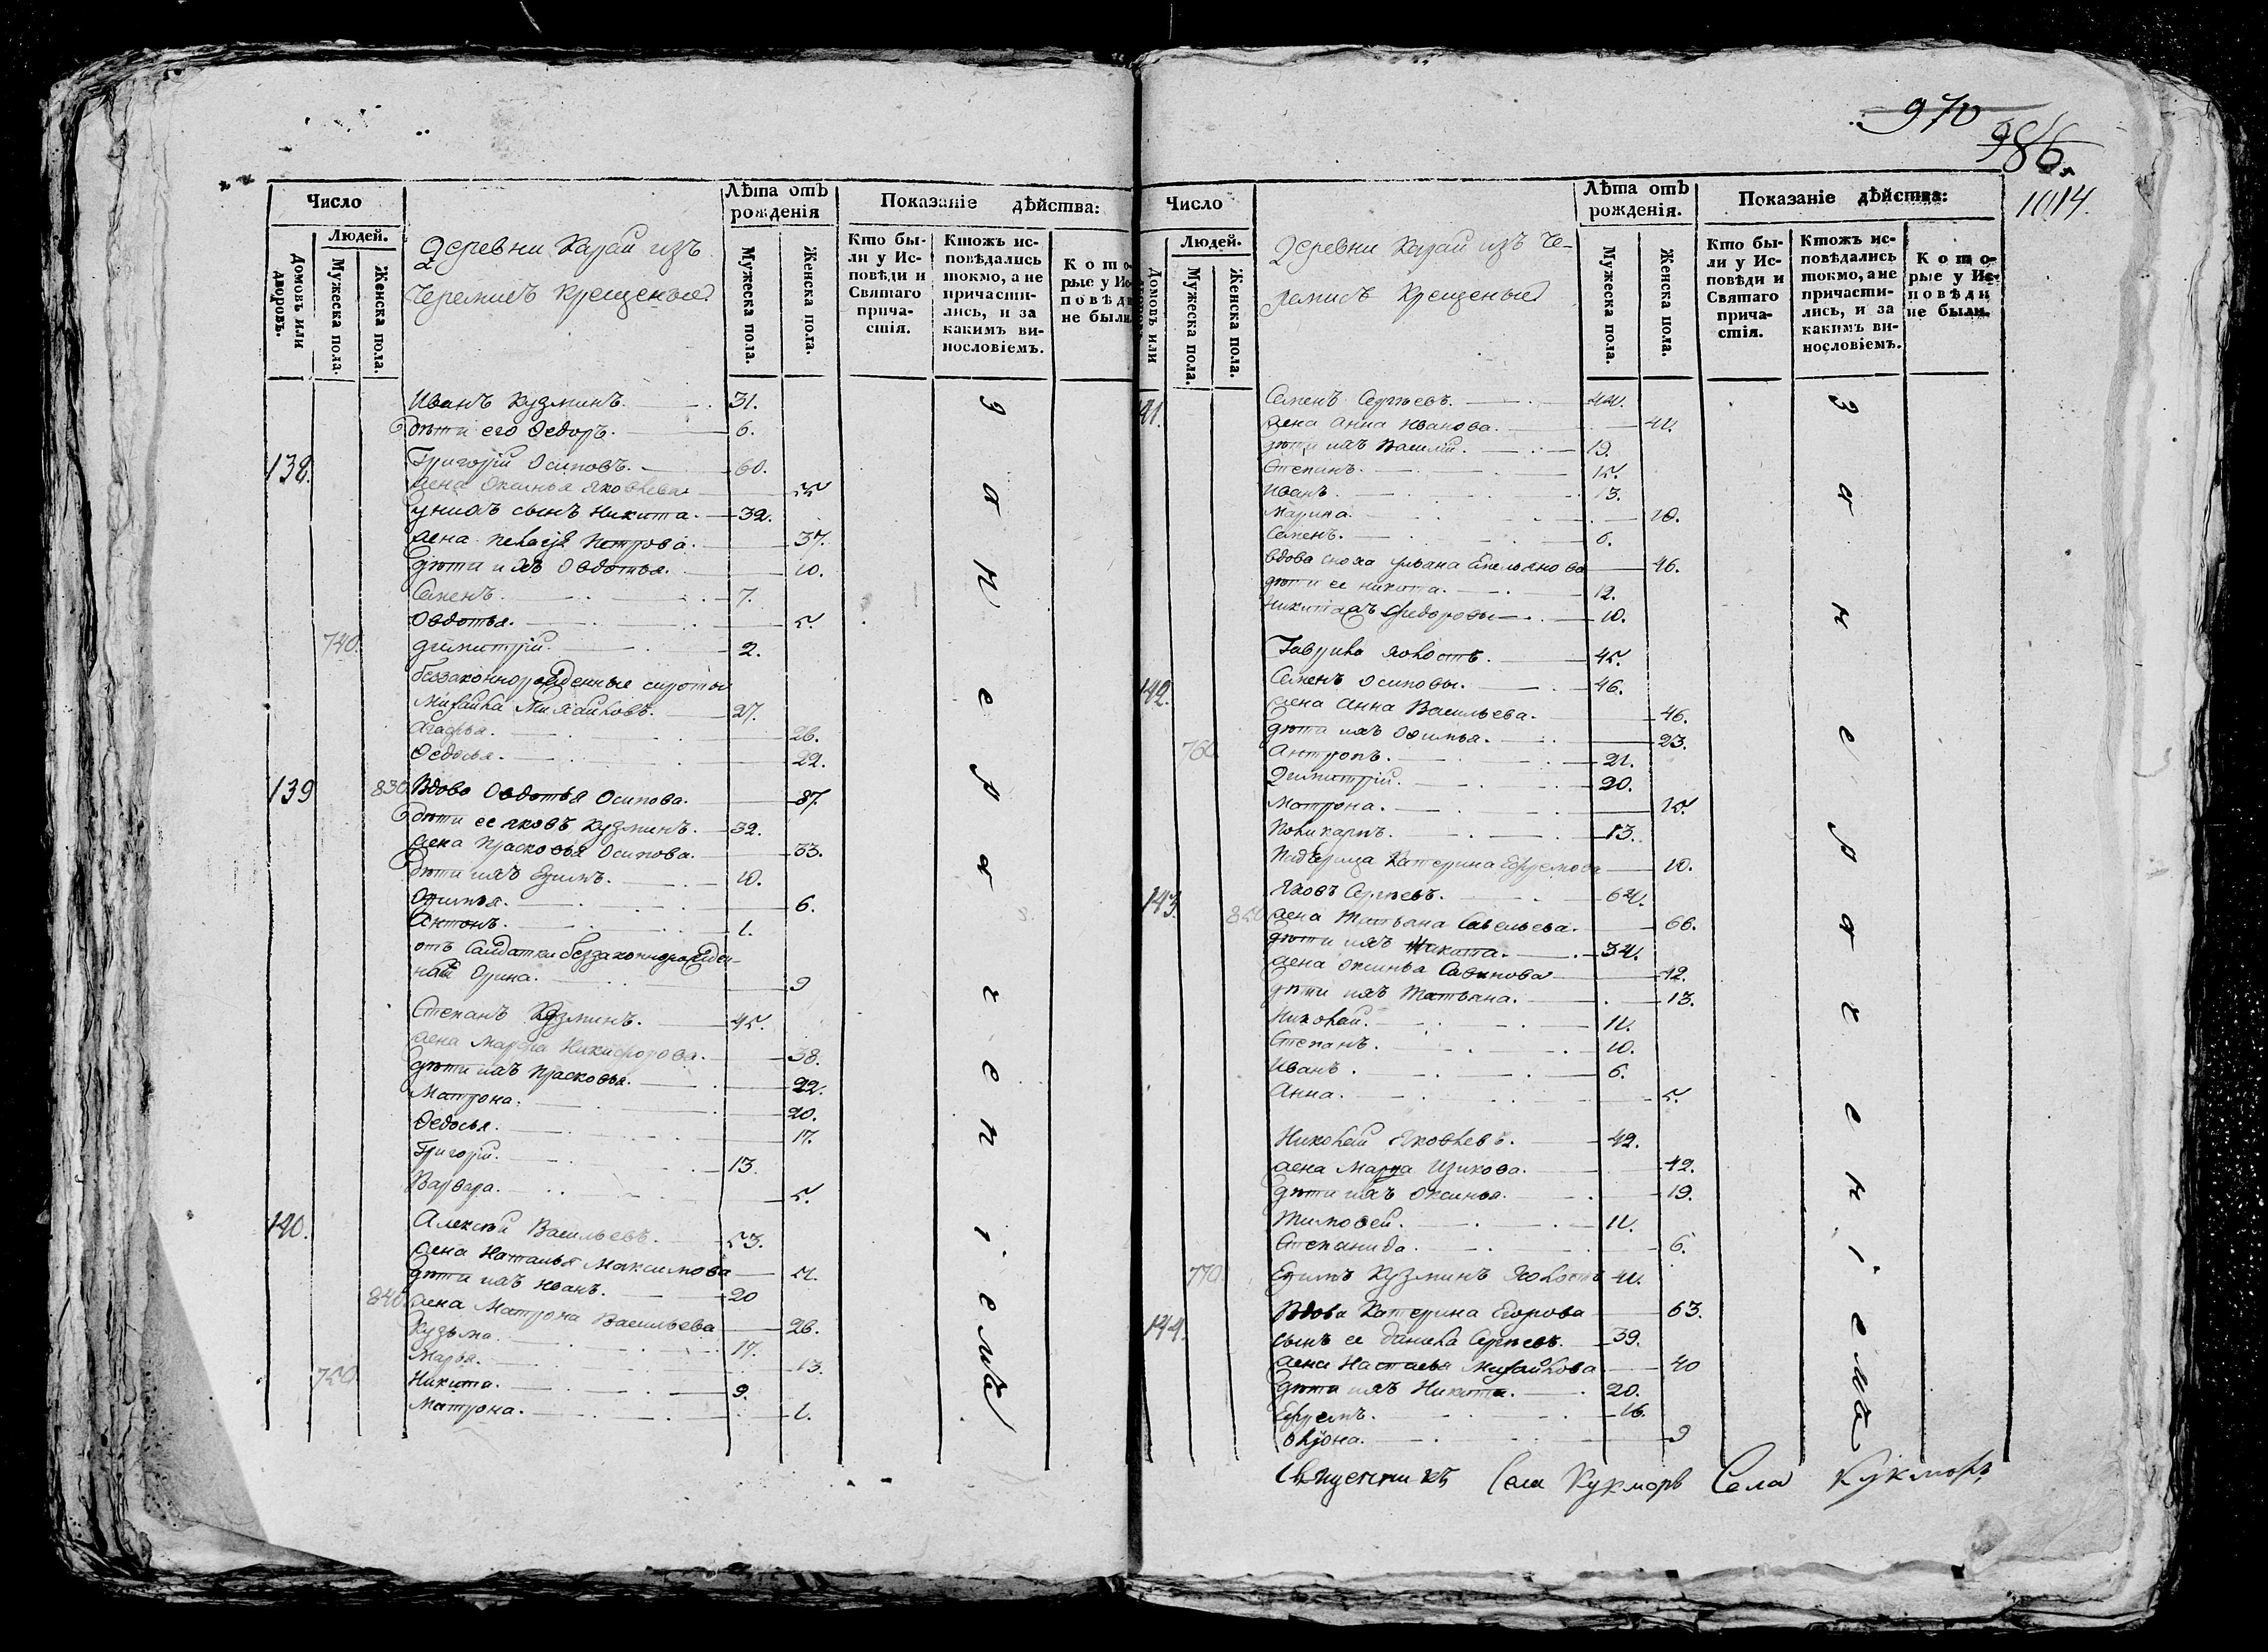 970
986
1014.
Число
Лѣта отъ рожденія
Показаніе дѣйства:
Людей.
Домовъ или дворовъ.
Мужеска пола.
Женска пола.
Деревни Карай изъ
Черемисъ крещеныя
Мужеска пола.
Женска пола.
Кто были у Исповѣди и Святаго причастія.
Ктожъ исповѣдались токмо, а не причастились, и за какимъ винословіемъ.
Которые у Исповѣди не были.
Иванъ Кузминъ. 31.
дѣти его Ѳедоръ. 6.
138. Григорій Осиповъ. 60.
жена Оксинья Яковлева 55
у нихъ сынъ Никита. 32.
жена Пелагѣя Петрова. 37.
дѣти ихъ Овдотья. 10.
Семенъ. 7.
Овдотья. 5.
740. Димитрій. 2.
беззаконнорожденные сироты
Михайла Михайловъ. 27.
Агафья. 26.
Ѳедосья. 22.
139 830 Вдова Овдотья Осипова. 87.
дѣти ее Яковъ Кузминъ. 32.
жена Прасковья Осипова. 33.
дѣти ихъ Ефимъ. 10.
Офимья. 6.
Антонъ. 1.
отъ Салдатки беззаконнорожден-
ная Орина. 9
Степанъ Кузминъ. 45.
жена Марфа Никифорова. 38.
дѣти ихъ Прасковья. 22.
Матрона. 20.
Ѳедосья. 17.
Григорій. 13.
Варвара. 5.
140. Алексѣй Васильевъ. 53.
жена Наталья Максимова 51.
дѣти ихъ Иванъ. 20
840 жена Матрона Васильева 26.
Кузьма. 17.
Марья. 13.
750 Никита. 9.
Матрона. 1.
за нерачениемъ
Число
Лѣта отъ рожденія.
Показаніе дѣйства:
Людей.
Домовъ или
Мужеска пола.
Женска пола.
Деревни Карай изъ Че-
ремисъ Крещеныя
Мужеска пола.
Женска пола.
Кто были у Исповѣди и Святаго причастія.
Ктожъ исповѣдались токмо, а не причастились, и за какимъ винословіемъ.
Которые у Исповѣди не были.
141. Семенъ Сергѣевъ. 44.
жена Анна Иванова. 44.
дѣти ихъ Василій. 19.
Степанъ. 15.
Иванъ. 13.
Марина. 10.
Семенъ. 6.
вдова сноха Ульана Емельянова 46.
дѣти ее Никита. 12.
Никита Федоровы 10.
Гаврила Холостъ. 45.
142. Семенъ Осиповъ. 46.
жена Анна Васильева. 46.
дѣти ихъ Офимья. 23.
760 Антропъ. 21.
Димитрій. 20.
Матрона. 15.
Поликарпъ. 13.
Падчерица Катерина Ефремова 10.
143. Яковъ Сергѣевъ. 64.
850 жена Татьяна Савельева. 66.
дѣти ихъ Никита. 34.
жена Оксинья Савинова 42.
дѣти ихъ Татьяна. 13.
Николай. 11.
Степанъ. 10.
Иванъ. 6.
Анна. 5.
Николай Яковлевъ. 42.
жена Марья 42.
дѣти ихъ Оксинья. 19.
Тимофей. 11.
Степанида. 6.
770. Ефимъ Кузминъ Холостъ 41.
144. Вдова Катерина Егорова 63.
сынъ ее Данила Сергѣевъ. 39.
жена Настасья Михайлова 40
дѣти ихъ Никита. 20.
Ефремъ. 16.
9
за нерачениемъ
Священникъ Села Кукморъ Села Кукморъ